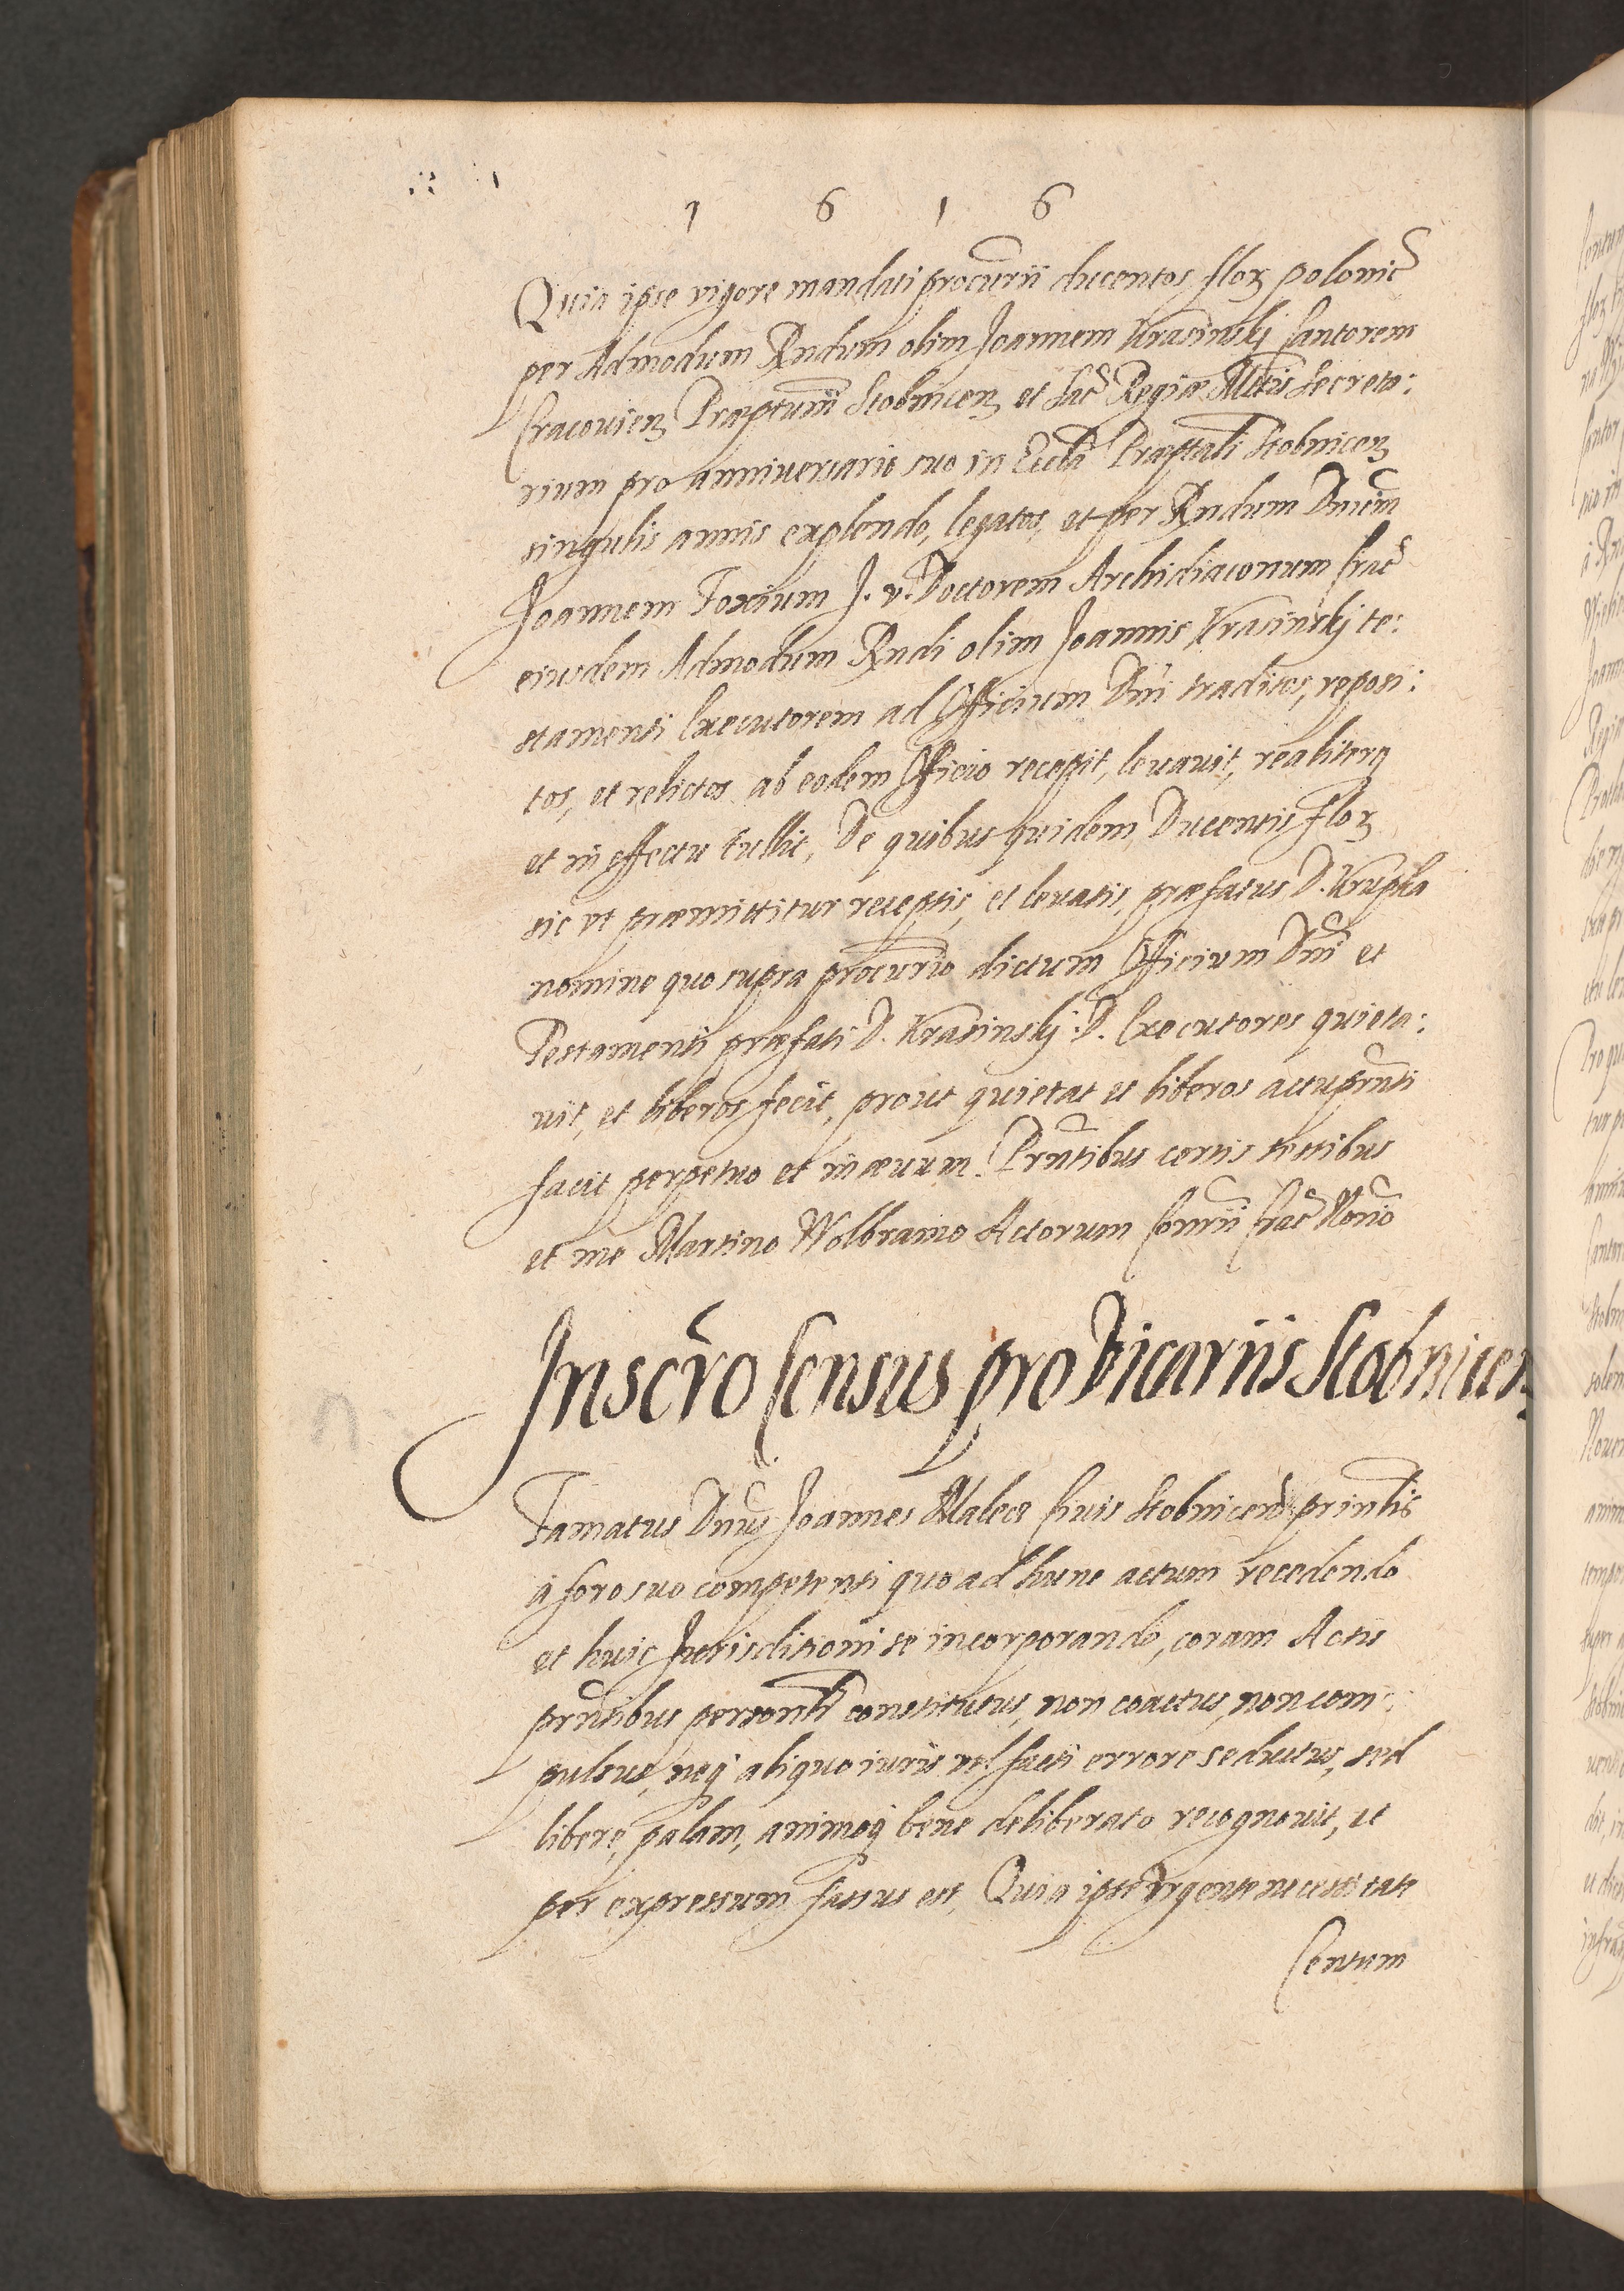 1 6 1 6
Quia ipse vigore mandati procurii ducentos flor polonic
per Admodum Rndum olim Joannem Krasinskj Cantorem
Cracouien Præptum Stobnicen et Sac Regiæ Mttis Secreta:
rium pro anniuersario suo in Eccla Præptali Stobnicen
singulis annis explendo, legatos, et per Rndum Dnum
Joannem Foxium J. v. Doctorem Archidiaconum Crac
eiusdem Admodum Rndi olim Joannis Krasinskj te:
stamenti Executorem ad Officium Dni traditos, reposi:
tos, et relictos ab eodem Officio recepit, leuauit, realiterq
et in effectu tullit, De quibus quidem Ducentis flor
sic vt præmittitur receptis, et leuatis, præfatus D. Krupka
nomine quo supra procurio dictum Officium Dni et
Testamenti præfati D. Krasinskj D. Executores quieta:
uit, et liberos fecit, prout quietat et liberos actu prnti
facit perpetuo et in æuum. Prntibus certis testibus
et me Martino Wolbramio Actorum Consrii Crac Norio
Inscro Census pro Vicariis Stobnicen
Famatus Dnus Joannes Malecz Ciuis Stobnicen prinlis
à foro suo competenti quo ad hunc actum recedendo
et huic Jurisditioni se incorporando, coram Actis
prntibus personlr constitutus, non coactus, non com:
pulsus, neq aliquo iuris vel facti errore seductus, sed
libere, palam, animoq bene deliberato recognouit, et
per expressum fassus est, Quia ipse vrgente necessitate
Centum